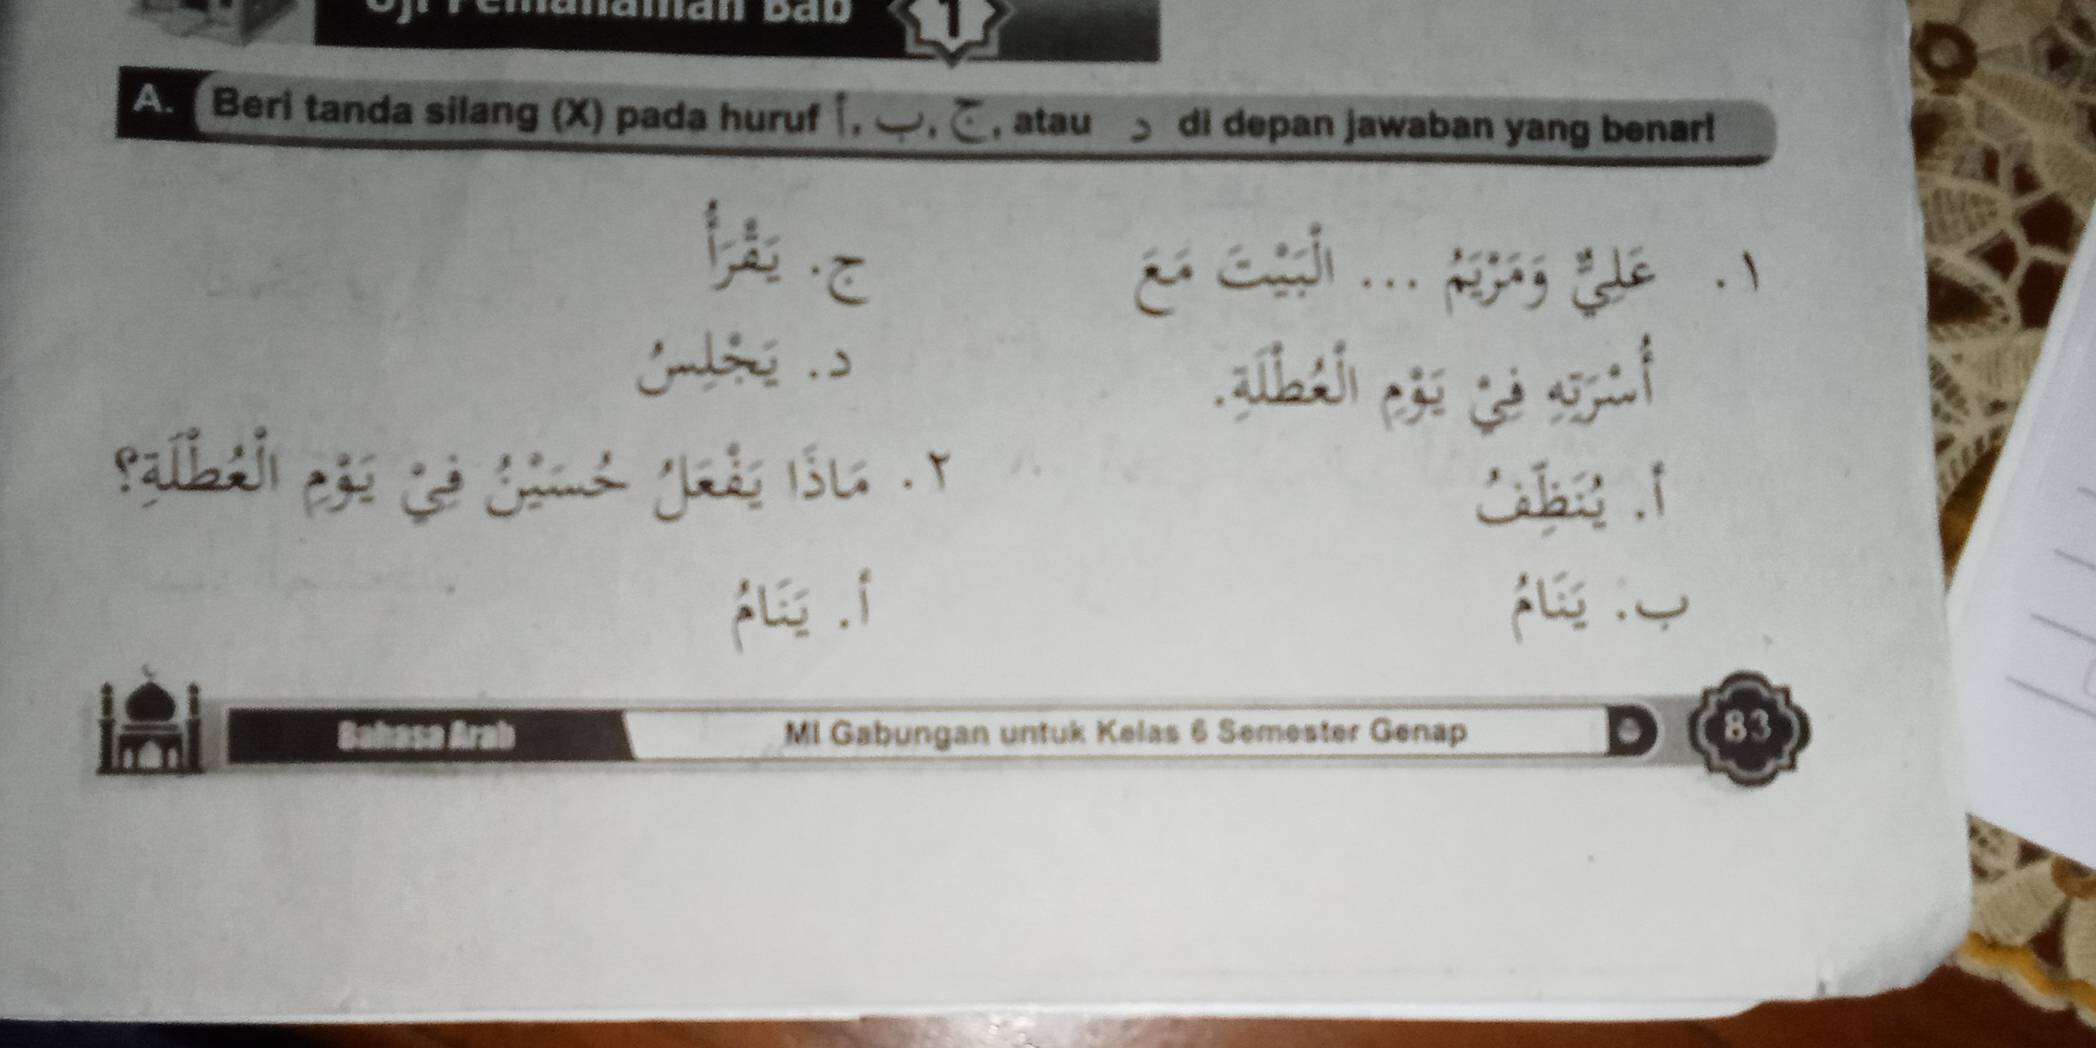 Uji Pemahaman Bab 1
A. Beri tanda silang (X) pada huruf أ, ب, ج, atau د di depan jawaban yang benar!
١. عَلِيٌّ وَمَرْيَمُ ... الْبَيْتَ مَعَ
أُسْرَتِهِ فِيْ يَوْمِ الْعُطْلَةِ.
أ. يُنَظِّفُ
ب. يَنَامُ
ج. يَقْرَأُ
د. يَجْلِسُ
٢. مَاذَا يَفْعَلُ حُسَيْنُ فِيْ يَوْمِ الْعُطْلَةِ؟
أ. يَنَامُ
Bahasa Arab
MI Gabungan untuk Kelas 6 Semester Genap
83